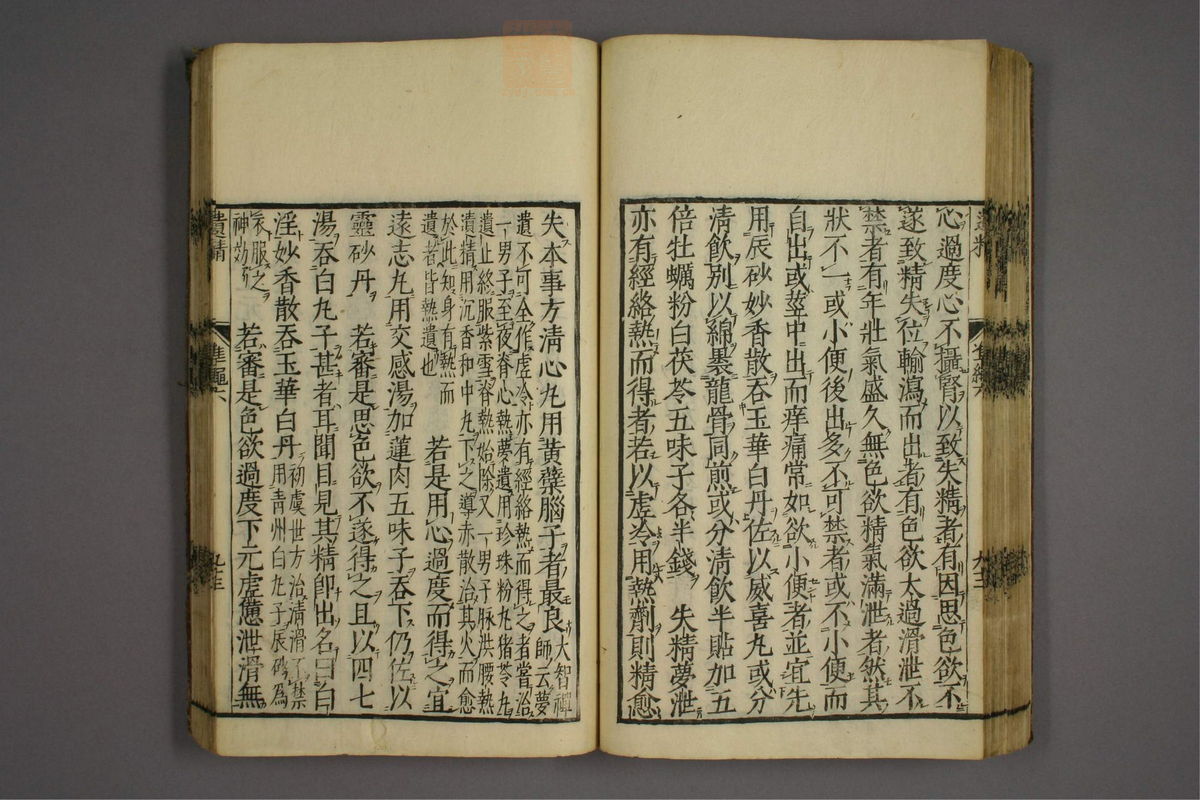 心過度心不攝腎以致失精者有因思色欲不
遂致精失位輸瀉而出者有色欲太過滑泄不
禁者有年壯氣盛久無色欲精氣滿泄者然其
狀不一或小便後出多不可禁者或不小便而
自出或莖中出而痒痛常如欲小便者並宜先
用辰砂妙香散吞玉華白丹佐以威喜丸或分
清飲別以綿裹龍骨同煎或分清飲半貼加五
倍牡蠣粉白茯苓五味子各半錢 失精夢泄
亦有經絡熱而得者若以虛冷用熱劑則精愈
失本事方清心丸用黃蘗腦子者最良大智禪
師云夢
遺不可全作虛冷亦有經絡熱而得之者嘗治
一男子至夜脊心熱夢遺用珍珠粉丸猪苓丸
遺止終服紫雪脊熱始除又一男子脉洪腰熱
遺精用沉香和中丸下之導赤散治其火而愈
於此知身有熱而
遺者皆熱遺也
若是用心過度而得之宜
遠志丸用交感湯加蓮肉五味子吞下仍佐以
靈砂丹 若審是思色欲不遂得之且以四七
湯吞白丸子甚者耳聞目見其精即出名曰白
淫妙香散吞玉華白丹初虞世方治清滑不禁
用青州白丸子辰砂為
衣服之
神効
若審是色欲過度下元虛憊泄滑無
遺精
準繩六